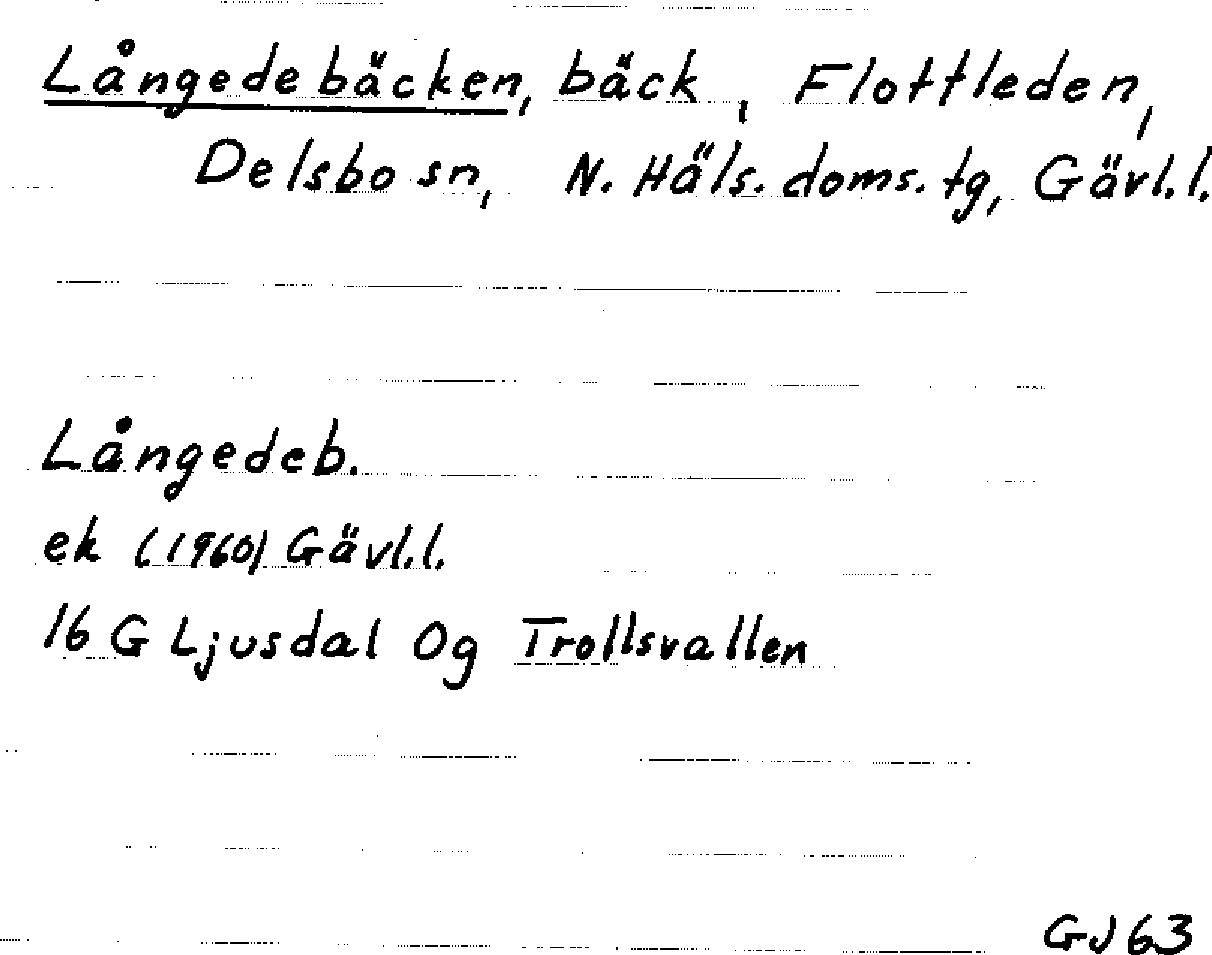 Långedebäcken, bäck, Flottleden,
Delsbo sn, N. Häls. doms. tg, Gävl.l.
Långedeb.
ek (1960) Gävl.l.
16 G Ljusdal 0g Trollsvallen
GJ 63